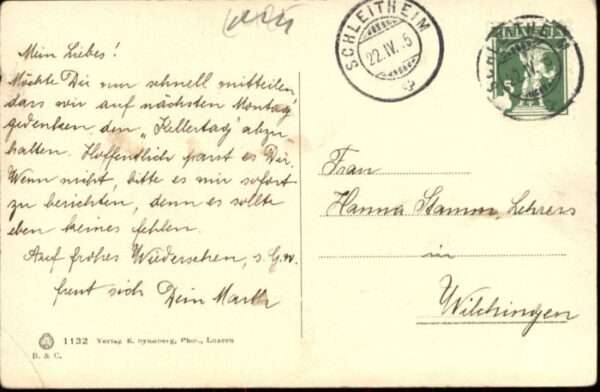 Mein Liebes!
Möchte Dir nur schnell mitteilen,
dass wir auf nächsten Montag
gedenken den „Kellertag" abzu-
halten. Hoffentlich passt es Dir.
Wenn nicht, bitte es mir sofort
zu berichten, denn es sollte
eben keines fehlen.
Auf frohes Wiedersehen, s. G. w.
freut sich Dein
1132 Verlag E. Phot., Luzern
B. & C.
SCHLEITHEIM
22.IV. 5
HELVETIA
5
SCHLEITHEIM
22.IV.
Frau
Hanna Stamm, Lehrers
in
Wilchingen